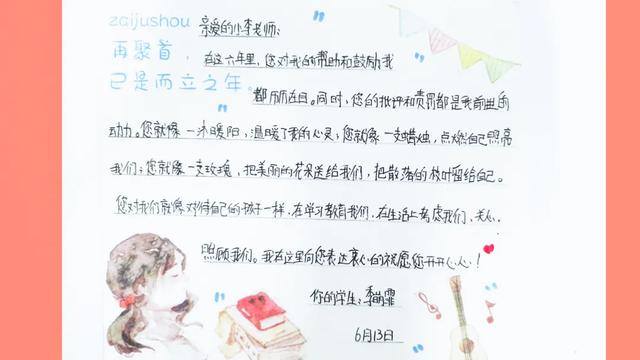 zaijushou
亲爱的小李老师:
再聚首,
在这六年里,您对我的帮助和鼓励,我
已是而立之年。
都历历在目。同时,您的批评和责罚都是我前进的
动力。您就像一米暖阳,温暖了我的心灵;您就像一支蜡烛,点燃自己照亮
我们;您就像一支玫瑰,把美丽的花朵送给我们,把散落的枝叶留给自己。
您对我们就像对待自己的孩子一样,在学习教育我们,在生活上考虑我们、关心、
照顾我们。我在这里向您表达衷心的祝愿您开开心心!
你的学生:季萌霏
6月13日